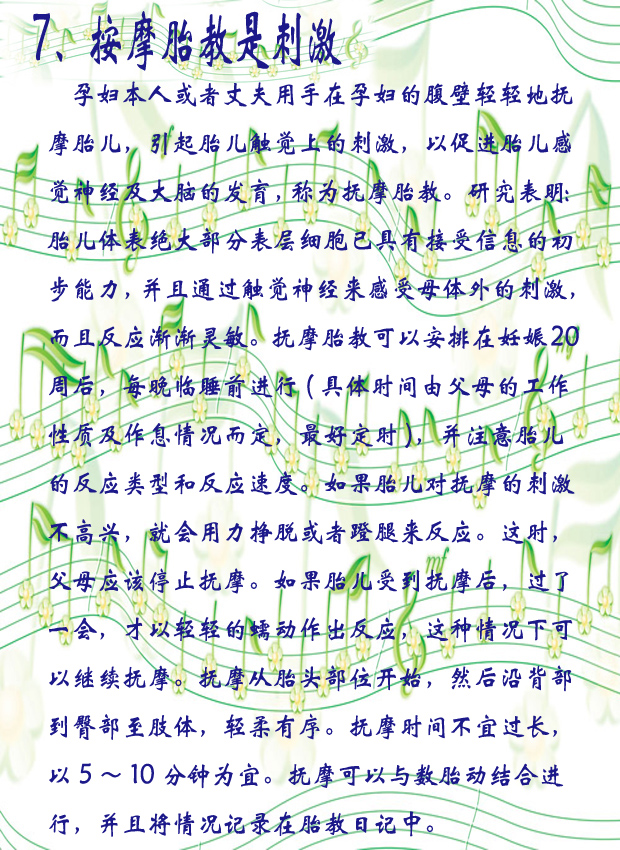 7、按摩胎教是刺激
孕妇本人或者丈夫用手在孕妇的腹壁轻轻地抚
摩胎儿，引起胎儿触觉上的刺激，以促进胎儿感
觉神经及大脑的发育，称为抚摩胎教。研究表明：
胎儿体表绝大部分表层细胞已具有接受信息的初
步能力，并且通过触觉神经来感受母体外的刺激，
而且反应渐渐灵敏。抚摩胎教可以安排在妊娠20
周后，每晚临睡前进行（具体时间由父母的工作
性质及作息情况而定，最好定时），并注意胎儿
的反应类型和反应速度。如果胎儿对抚摩的刺激
不高兴，就会用力挣脱或者蹬腿来反应。这时，
父母应该停止抚摩。如果胎儿受到抚摩后，过了
一会，才以轻轻的蠕动作出反应，这种情况下可
以继续抚摩。抚摩从胎头部位开始，然后沿背部
到臀部至肢体，轻柔有序。抚摩时间不宜过长，
以5～10分钟为宜。抚摩可以与数胎动结合进
行，并且将情况记录在胎教日记中。